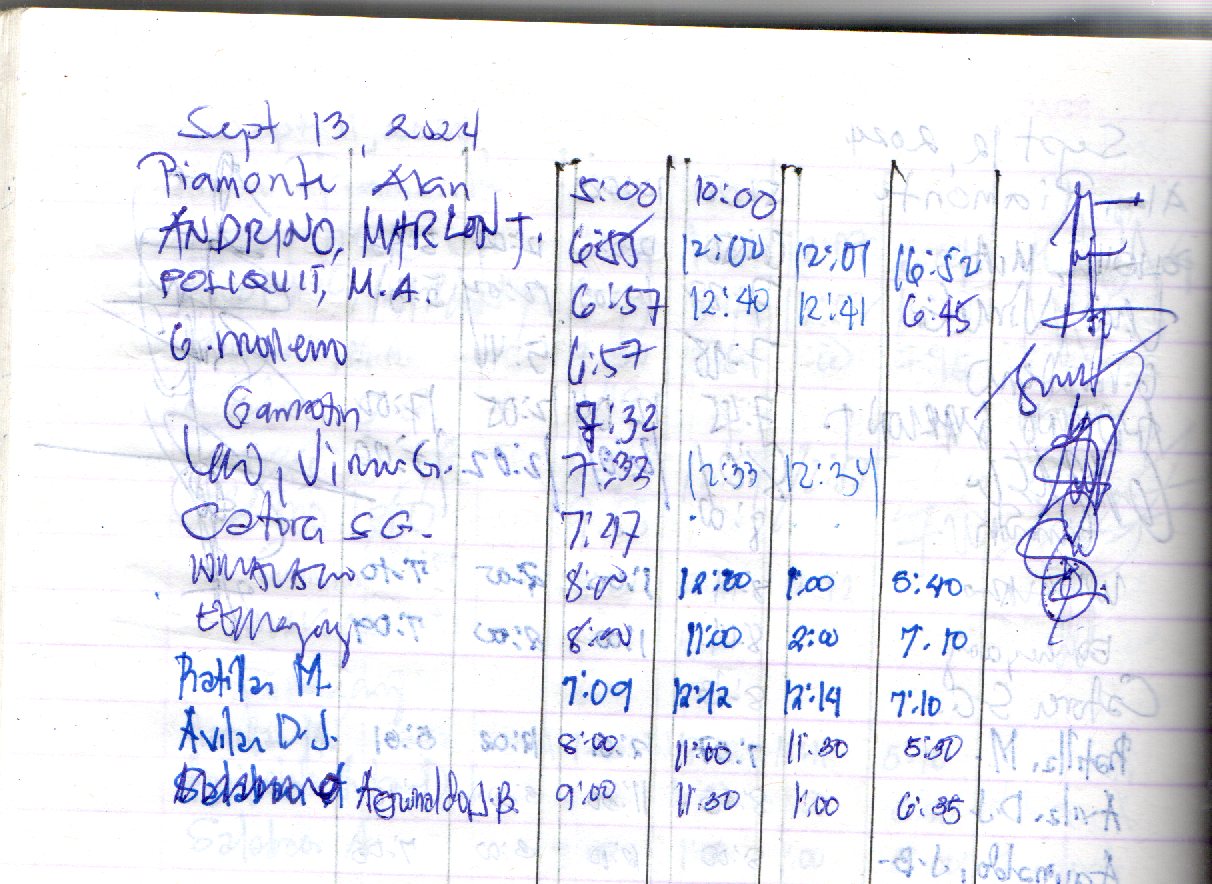 Sept 13, 2024
Piamonte Alan 5:00 10:00
ANDRINO, MARLON J. 6:55 12:00 12:01 16:52
POLIQUIT, M.A. 6:57 12:40 12:41 6:45
G. 6:57
7:32
Leo, G. 7:33 12:33 12:34
Catora S G. 7:47
8:00 12:00 1:00 5:40
8:00 11:00 2:00 7:10
Ratilla M. 7:09 12:12 12:14 7:10
Avila D.J. 8:00 11:00 11:30 5:30
Aguinaldo, J.B. 9:00 11:30 1:00 6:35